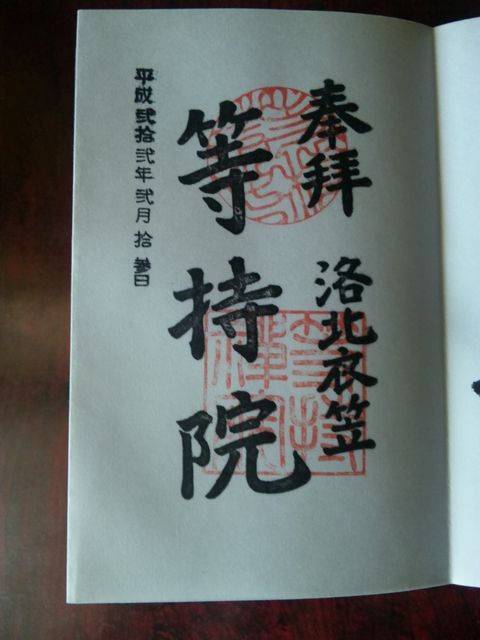 奉拝
洛北衣笠
等持院
平成弐拾弐年弐月拾参日